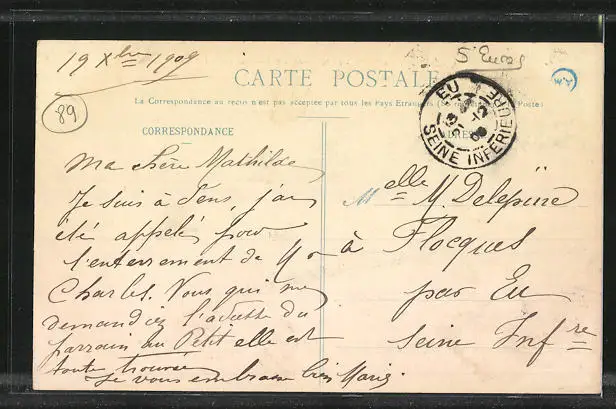 19 Xbre 1909
5 Eures
CARTE POSTALE
La Correspondance au recto n'est pas acceptée par tous les Pays Etrangers (Se Poste)
89
CORRESPONDANCE
EU
SEINE INFERIEURE
Ma chère Mathilde
Je suis à Sens, j'ai
été appelé pour
l'enterrement de
Charles. Vous qui me
demandiez l'adresse du
parrain au Petit elle est
toute trouvée
Je vous embrasse bien Marie
Melle M. Delepine
à Flocques
par Eu
Seine Infre